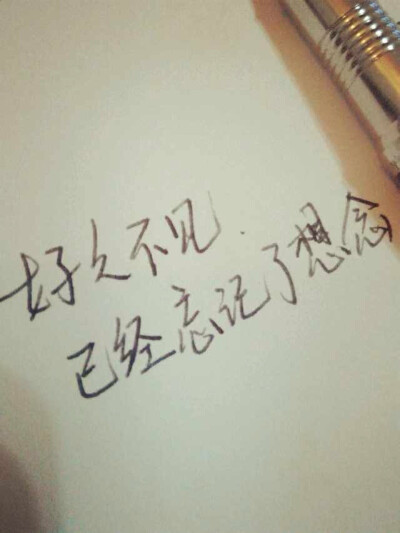 好久不见.
已经忘记了想念